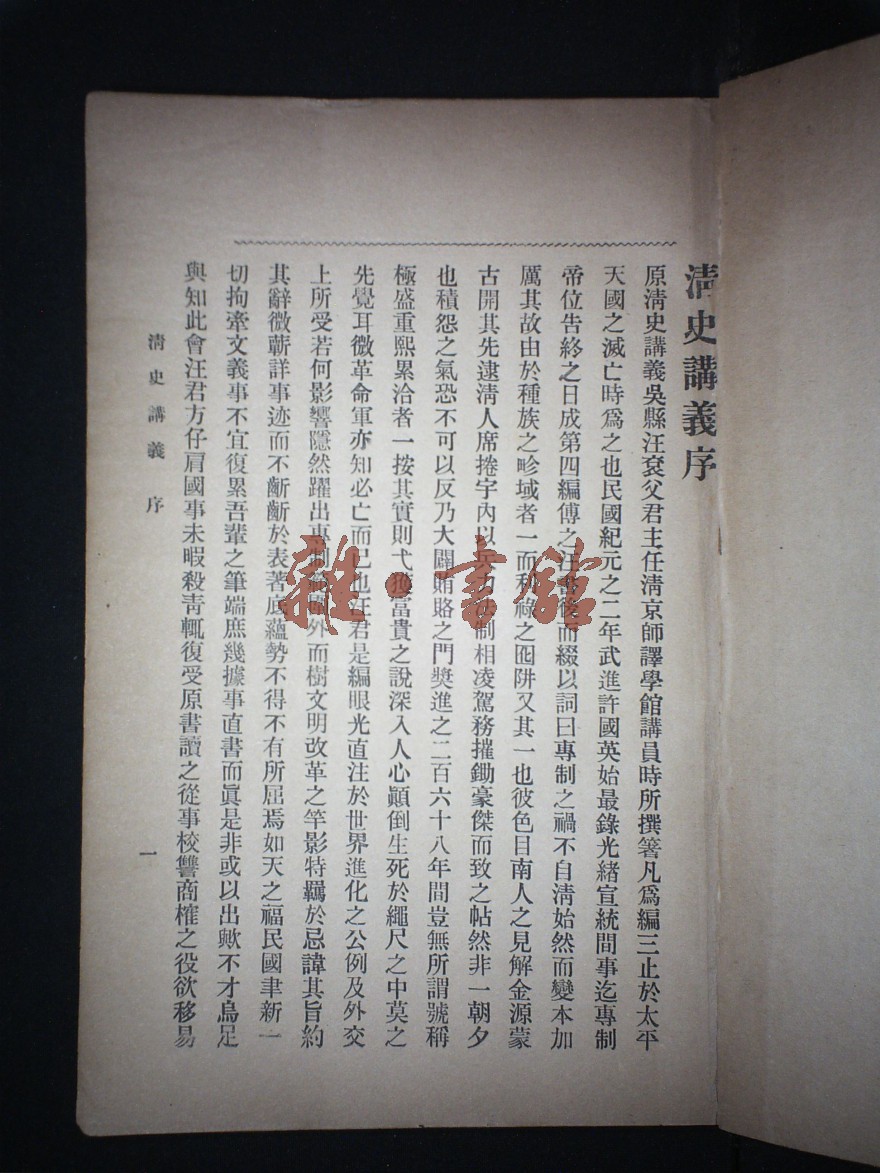 清史講義序
原清史講義吳縣汪袞父君主任清京師譯學館講員時所撰箸凡爲編三止於太平
天國之滅亡時爲之也民國紀元之二年武進許國英始最錄光緒宣統間事迄專制
帝位告終之日成第四編傅之汪書後而綴以詞曰專制之禍不自清始然而變本加
厲其故由於種族之畛域者一而利祿之囮阱又其一也彼色目南人之見解金源蒙
古開其先逮清人席捲宇內以兵力法制相凌駕務摧鋤豪傑而致之帖然非一朝夕
也積怨之氣恐不可以反乃大闢賄賂之門奬進之二百六十八年間豈無所謂號稱
極盛重熙累洽者一按其實則弋獲富貴之說深入人心顚倒生死於繩尺之中莫之
先覺耳微革命軍亦知必亡而已也汪君是編眼光直注於世界進化之公例及外交
上所受若何影響隱然躍出專制範圍外而樹文明改革之竿影特羈於忌諱其旨約
其辭微蘄詳事迹而不齗齗於表著底蘊勢不得不有所屈焉如天之福民國聿新一
切拘牽文義事不宜復累吾輩之筆端庶幾據事直書而眞是非或以出歟不才烏足
與知此會汪君方仔肩國事未暇殺靑輒復受原書讀之從事校讐商榷之役欲移易
清史講義 序
一
雜·書館